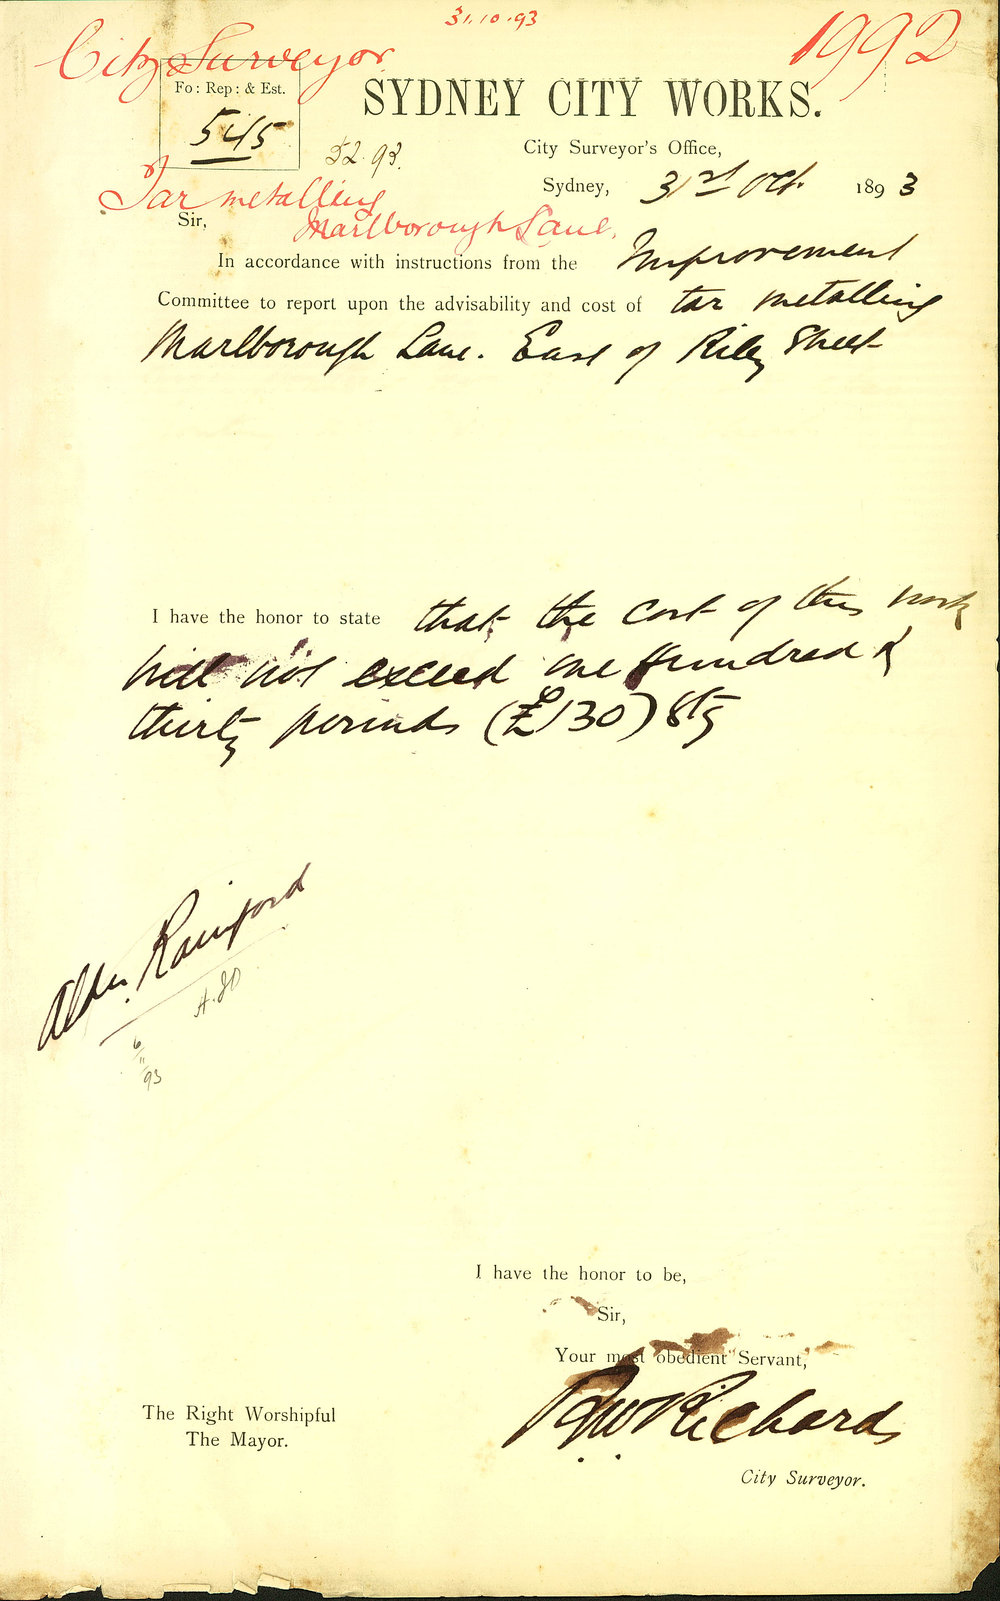 31.10.93
City Surveyor
1992
Fo: Rep: & Est.
545
52.93.
SYDNEY CITY WORKS.
City Surveyor's Office,
Sydney, 31st Oct. 1893
Tar metalling
Marlborough Lane.
Sir,
In accordance with instructions from the Improvement
Committee to report upon the advisability and cost of tar metalling
Marlborough Lane. East of Riley Street
I have the honor to state that the cost of this work
will not exceed one hundred &
thirty pounds (£130) Stg
Aldn. Rainford
6/11/93
I have the honor to be,
Sir,
Your most obedient Servant,
RWRichards
City Surveyor.
The Right Worshipful
The Mayor.